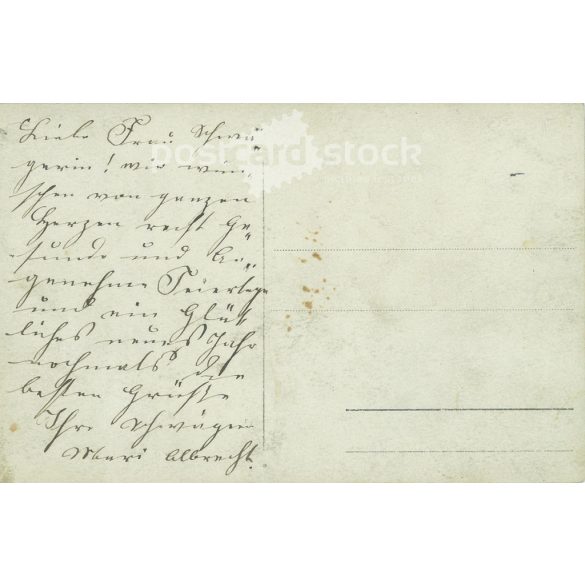 Liebe Frau Schwä⸗
gerin! wir wün⸗
schen von ganzen
Herzen recht Ge⸗
sunde und An⸗
genehme Feiertage
und ein Glük
liches neues Jahr
nochmals die
besten Grüsse
Ihre Schwägerin
Mari Albrecht.
postcard stock